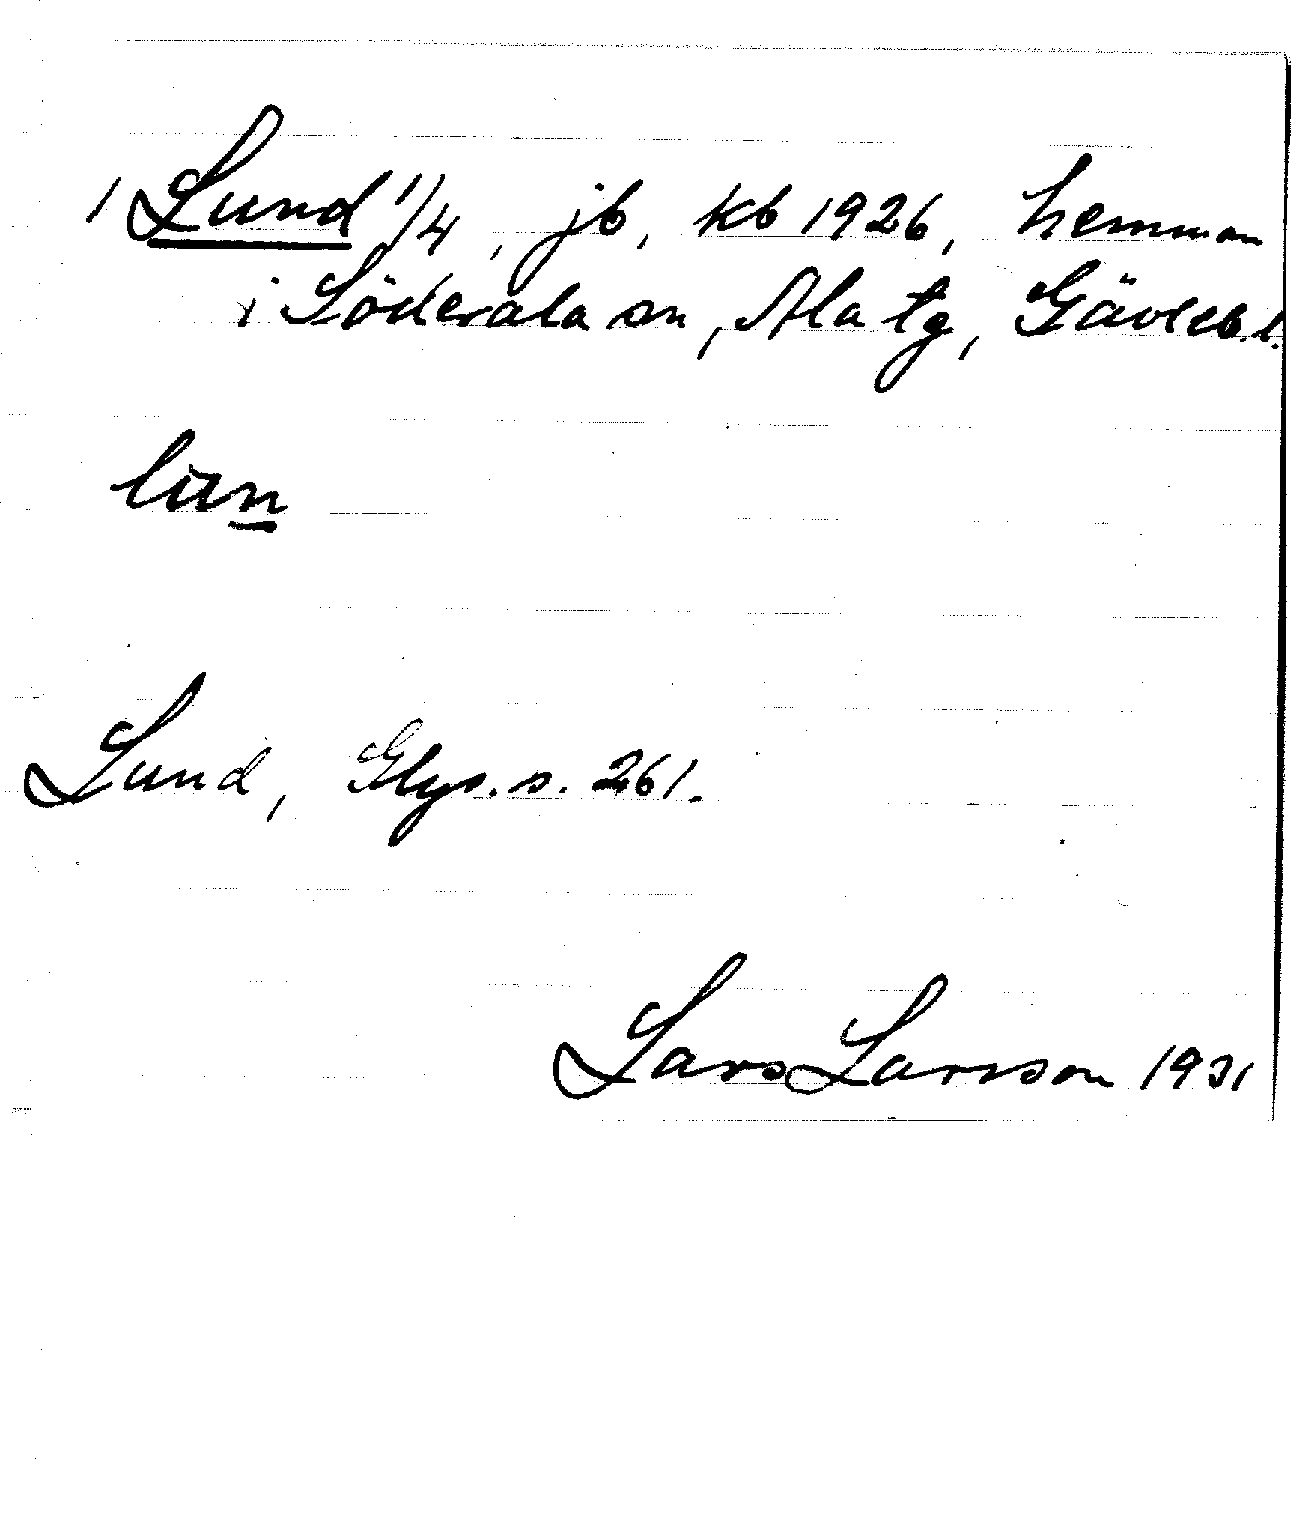 1 Lund 1/4, jb, kb 1926, hemman
i Söderala sn, Ala tg, Gävleb l.
Lund, Glys. s. 261.
Lars Larsson 1931